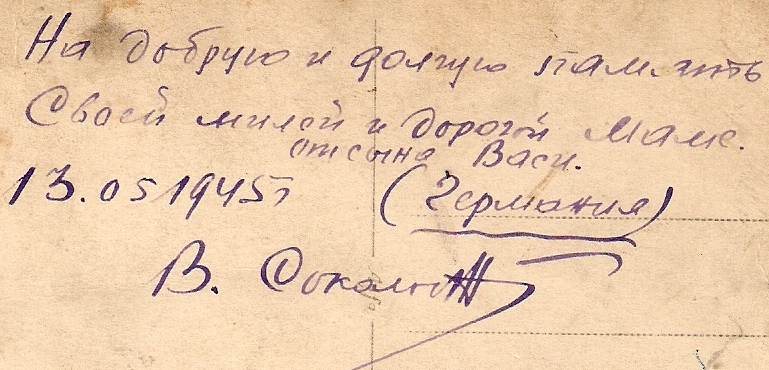 На добрую и долгую память
Своей милой и дорогой Маме.
от сына Васи.
13.05 1945г (Германия)
В.